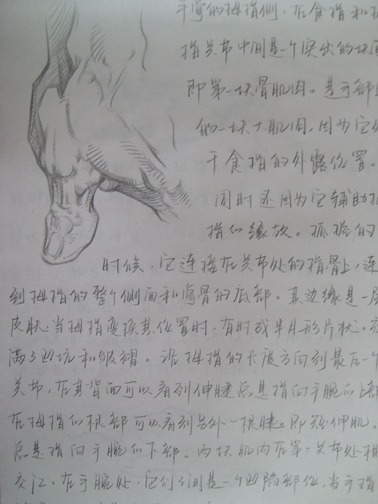 手掌的拇指侧，在食指和拇
指关节中间是一个突出的块面
即第一块骨肌肉。是手部
的一块大肌肉。因为它
于食指的外露位置。
同时还因为它辅助拇
指的缘故。孤掌的
时候，它连接在关节处的指骨上，连
到拇指的整个侧面和掌骨的底部。其边缘是一层
皮肤，当拇指变换其位置时，有时成半月形片状。充
满了凹坑和皱褶。沿拇指的长度方向到最后一个
关节，在其背面可以看到伸腱总是指向手腕的上部
在拇指的根部可以看到另外一根腱。即短伸肌。
总是指向手腕的下部。两块肌肉在第一关节处相
交汇，在手腕处，它们之间是一个凹陷部位，当手指